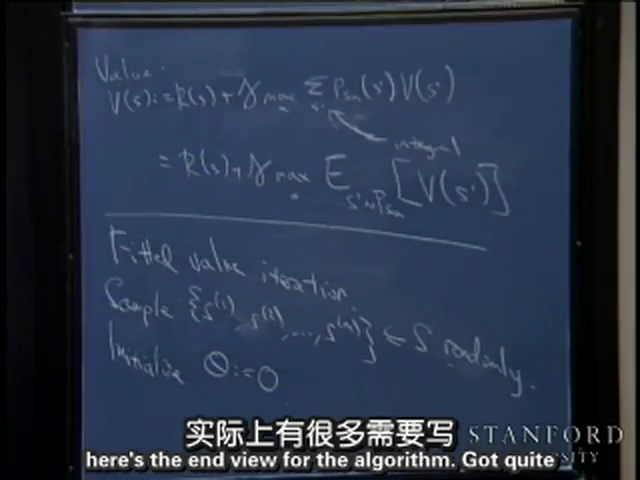 Value:
V(s) := R(s) + γ max_a Σ_s' P_sa(s') V(s')
integral
= R(s) + γ max_a E_s'~P_sa [V(s')]
Fitted value iteration.
Sample {s⁽¹⁾, s⁽²⁾, ..., s⁽ᵐ⁾} ⊆ S randomly.
Initialize Θ := 0
实际上有很多需要写
STANFORD
here's the end view for the algorithm. Got quite